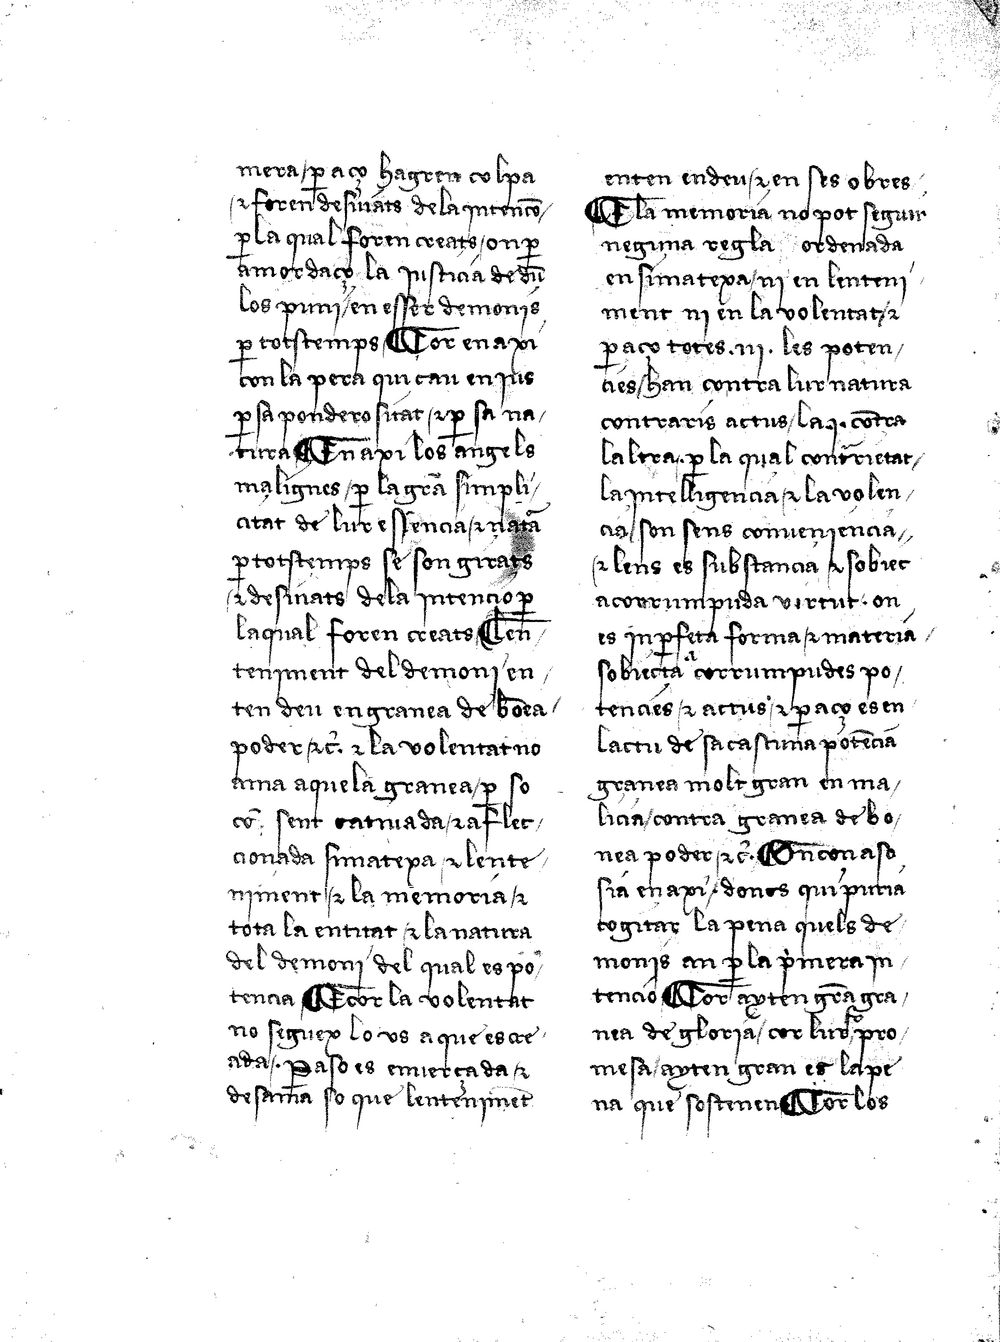 mera / ꝑ aço hagren colpa
⁊ foren desiuiats dela intencō /
ꝑ la qual foren creats / on ꝑ
amor daço la justicia de dū
los puni / en esser demonis
ꝑ totstemps ¶ Cor enaxi
con la pera qui cau en jus
ꝑ sa ponderositat / ⁊ ꝑ sa na /
tura ¶ Enaxi los angels
malignes / ꝑ la grā simpli /
citat de lur essencia / ⁊ natā
ꝑ totstemps se son girats
⁊ desiuiats dela intencio ꝑ
la qual foren creats ¶ Len /
teniment del demoni en /
ten deu en granea de bōea /
poder / ⁊c̄. ⁊ la volentat no
ama aquela granea / ꝑ so
cō, sent catiuada / ⁊ aflec /
cionada simatexa / ⁊ lente /
niment / ⁊ la memoria / ⁊
tota la entitat / ⁊ la natura
del demoni del qual es po /
tencia ¶ E cor la volentat
no seguex lo us a que es cre /
ada /. Per aso es enuerçada / ⁊
desama so que lentenimēt
enten en deu / ⁊ en ses obres /
¶ E la memoria no pot seguir
neguna regla ordenada
en simatexa / ni en lenteni /
ment ni en la volentat / ⁊
ꝑ aço totes .iii. les poten /
cies / han contra lur natura
contraris actus / la .i. cōtra
laltra /. ꝑ la qual contrietat /
la intelligencia / ⁊ la volen /
cia / son sens conueniencia /
⁊ lens es substancia ⁊ sobiec
a corrumpuda virtut . on
es inꝑfeta forma / ⁊ materia /
sobiecta a corrumpudes po /
tencies / ⁊ actus / ⁊ ꝑ aço es en
lactu de sa cascuna potēcia
granea molt gran en ma /
licia / contra granea de bo /
nea poder / ⁊c̄. ¶ On con aso
sia enaxi / doncs qui puria
cogitar la pena quels de /
monis an ꝑ la pͥmera in /
tencio ¶ Cor ayten grā gra /
nea de gloria / cor lur fo pro /
mesa / ayten gran es la pe
na que sostenen ¶ Cor los